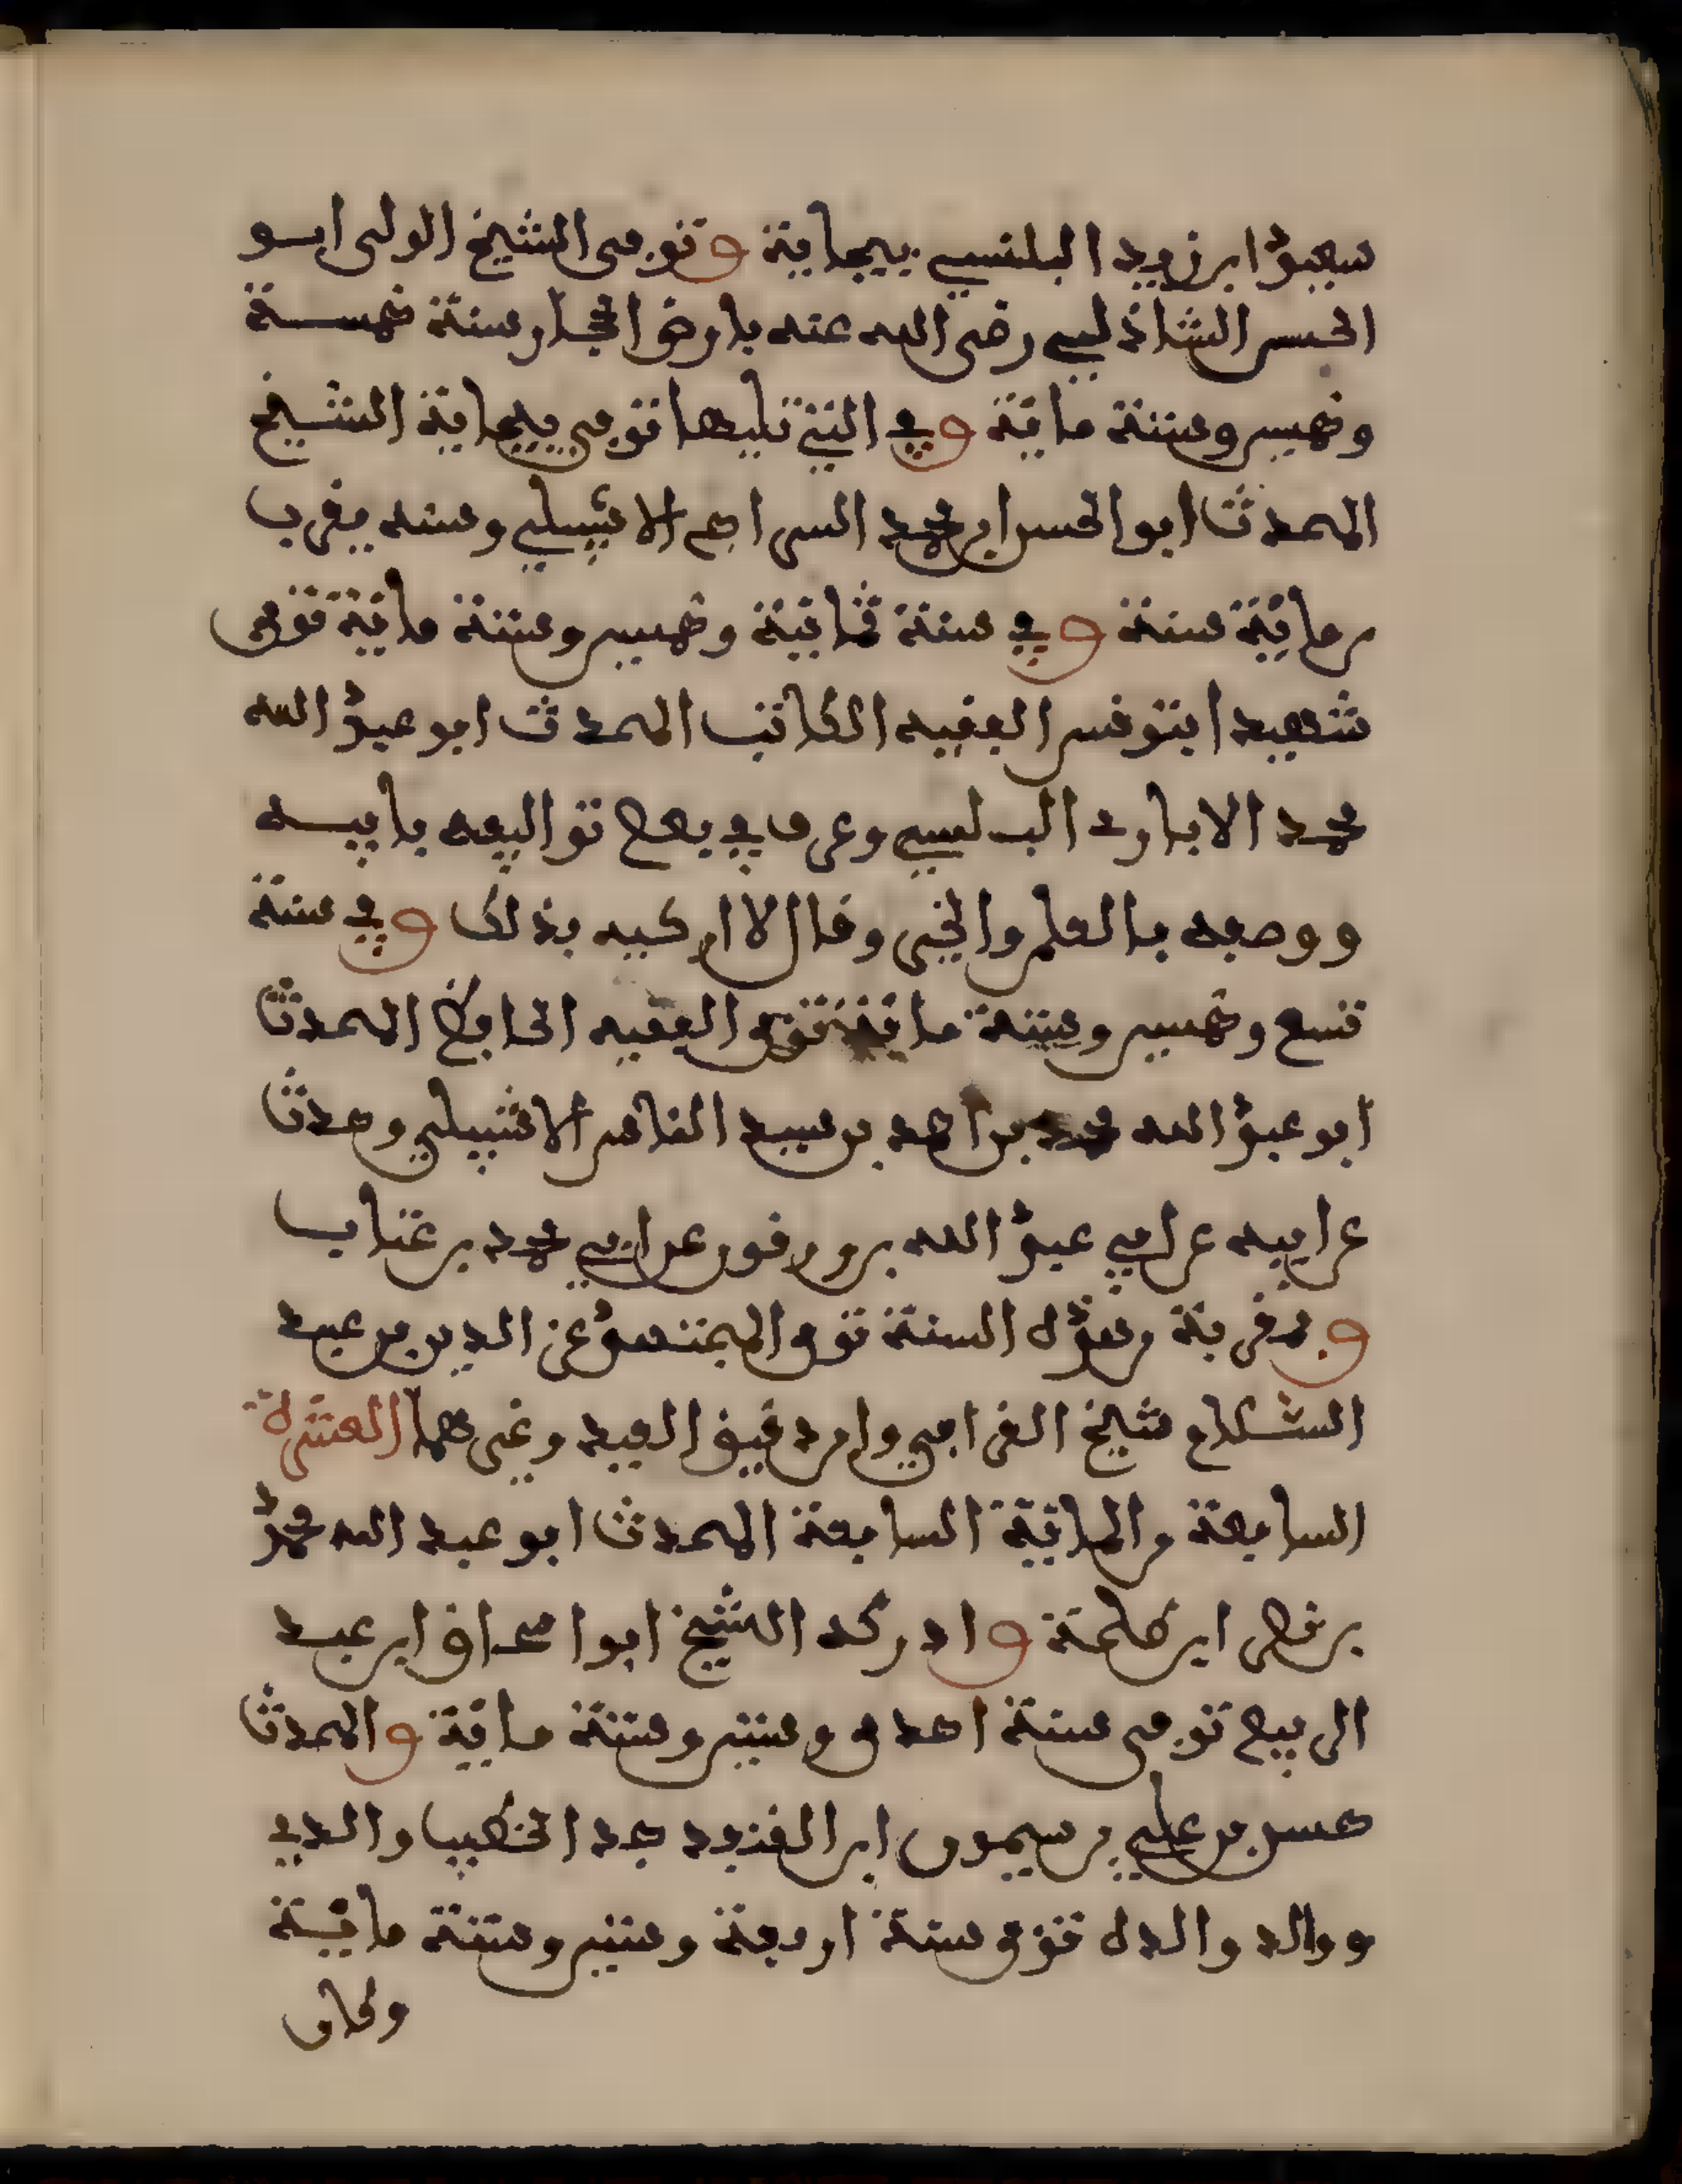 سعيد ابن زويد البلنسي ببجاية وتوفى الشيخ الولى ابو
الحسن الشاذلي رضى الله عنه بارض الحجاز سنة خمسة
وخمسين وستة ماية وفي التي تليها توفي ببجاية الشيخ
المحدث ابو الحسن ابن محمد السراج الاشبيلي وسنه يقرب
من ماية سنة وفي سنة ثمانية وخمسين وستة ماية توفي
شهيدا بتونس الفقيه الكاتب المحدث ابو عبد الله
محمد الابار البلنسي وعرف في بعض تواليفه بابيه
ووصفه بالعلم والخير وقال لا ازكيه بذلك وفي سنة
تسع وخمسين وستة ماية توفي الفقيه الحافظ المحدث
ابو عبد الله محمد بن احمد بن سيد الناس الاشبيلي وحدث
عن ابيه عن ابي عبد الله بن زرقون عن ابي محمد بن عتاب
وبقربة من هذه السنة توفي المجتهد عز الدين بن عبد
السلام شيخ القرافي وابن دقيق العيد وغيرهما العشرة
السابعة من الماية السابعة المحدث ابو عبد الله محمد
بن ابن طلحة وادركه الشيخ ابو اسحاق ابن عبد
الرفيع توفي سنة احدى وستين وستة ماية والمحدث
حسن بن علي بن ميمون ابن القنفود جد الخطيب والدي
ووالد والده توفي سنة اربعة وستين وستة ماية
وكان